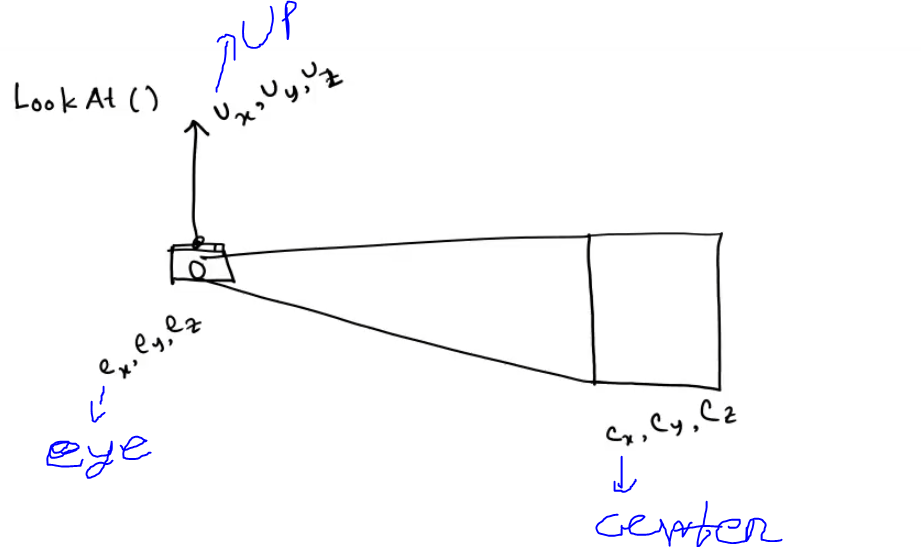 UP
LookAt()
Ux, Uy, Uz
ex, ey, ez
eye
Cx, Cy, Cz
center